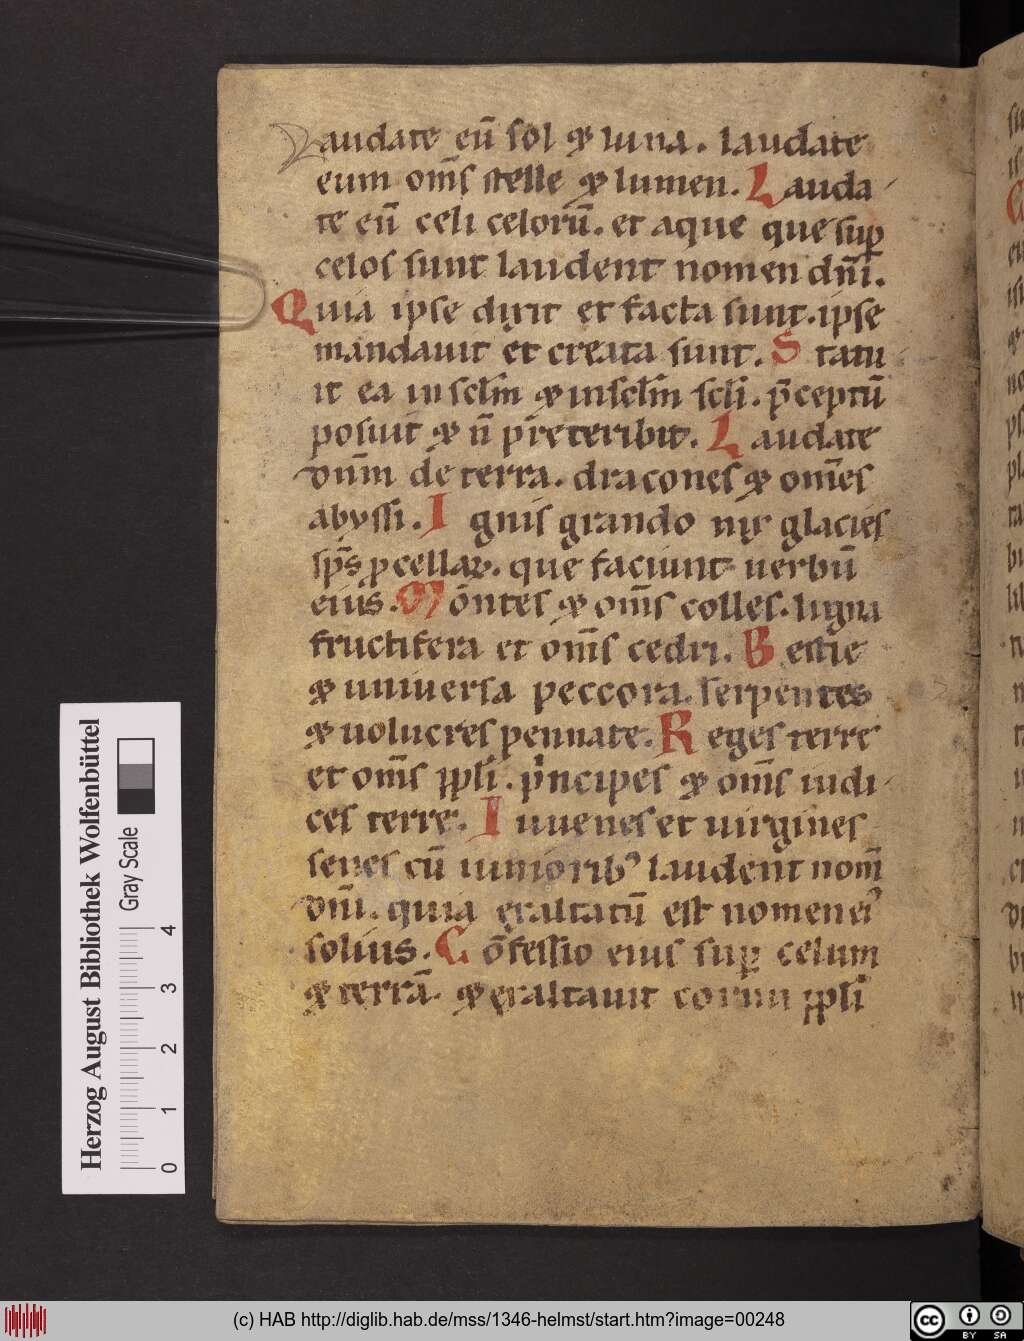 Laudate eū sol & luna. laudate
eum om̄s stelle & lumen. Lauda
te eū celi celorū. et aque que sup
celos sunt laudent nomen dn̄i.
Quia ipse dixit et facta sunt. ipse
mandauit et creata sunt. Statu
it ea in sclm̄ & in sclm̄ scl̄i. p̄ceptū
posuit & n̄ pͥreteribit. Laudate
dn̄m de terra. dracones & omēs
abyssi. Ignis grando nix glacies
sp̄s pcellaꝝ. que faciunt uerbū
eius. Montes & om̄s colles. ligna
fructifera et om̄s cedri. Bestie
& uniuersa peccora. serpentes
& uolucres pennate. Reges terre
et om̄s ppl̄i. pͥncipes & om̄s iudi
ces terre. Iuuenes et uirgines
senes cū iuniorib' laudent nom̄
dn̄i. quia exaltatū est nomen ei'
solius. Cōfessio eius sup celum
& terrā. & exaltauit cornu ppl̄i
Herzog August Bibliothek Wolfenbüttel
Gray Scale
0 1 2 3 4
(c) HAB http://diglib.hab.de/mss/1346-helmst/start.htm?image=00248
cc BY SA